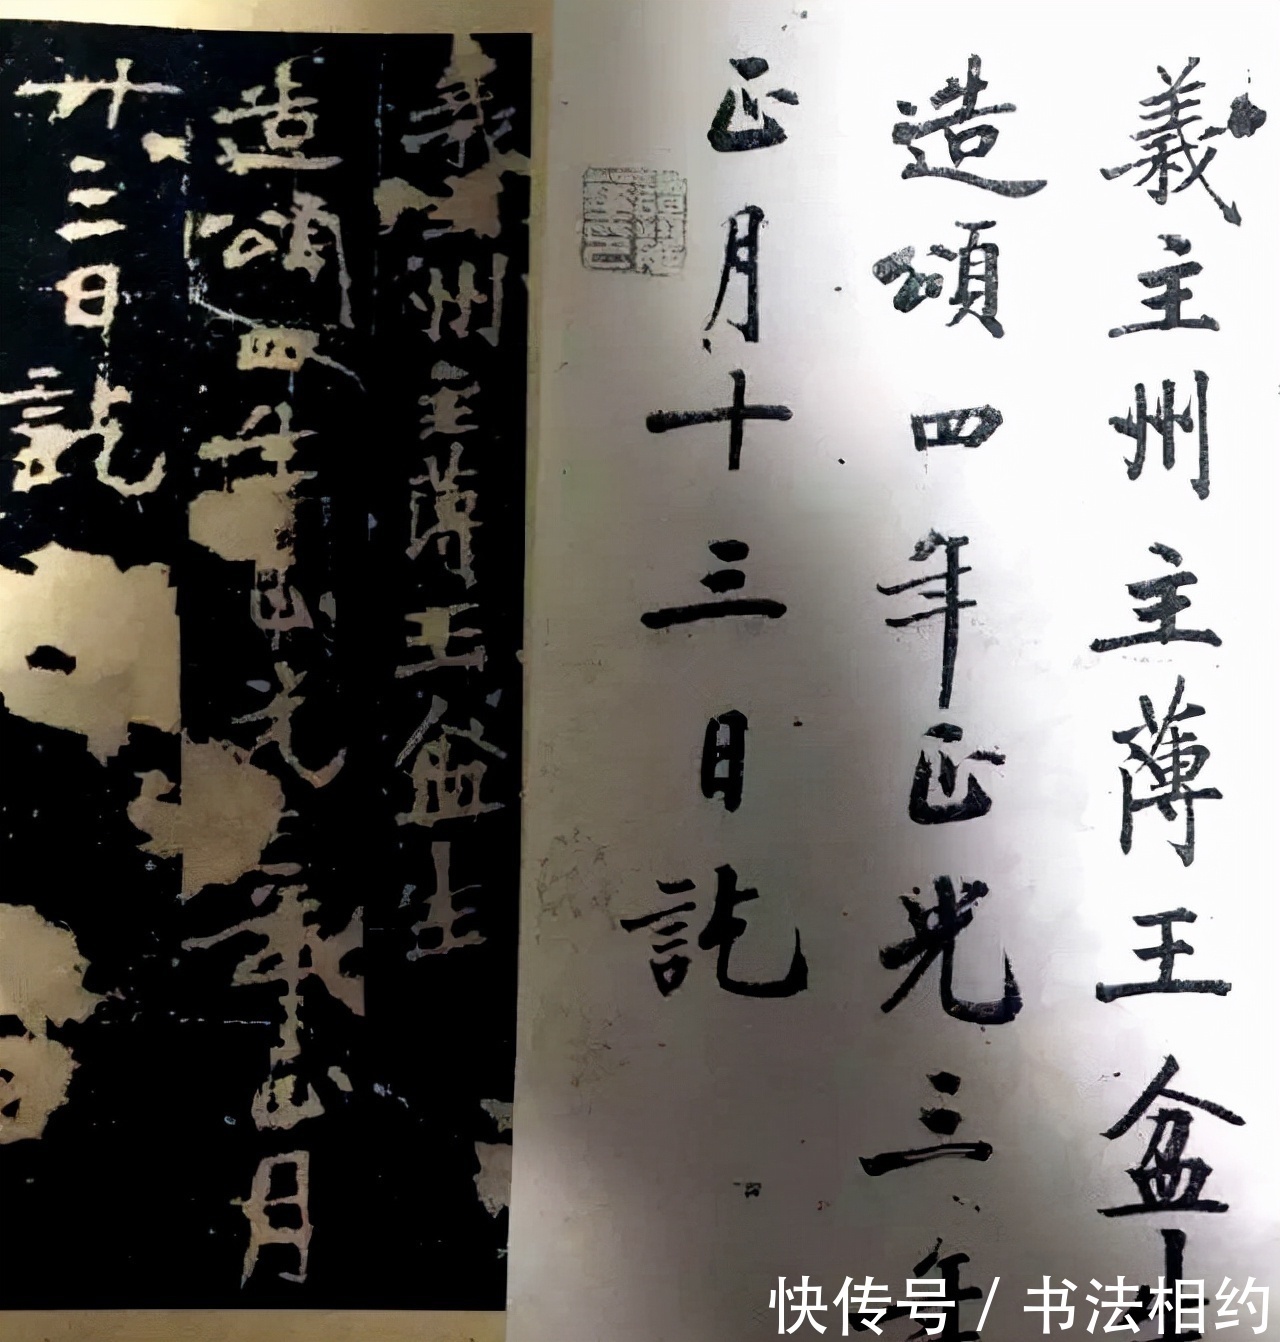 義主州主薄王盆
造頌四年正光三年
正月十三日訖
義主州主薄王盆土
造頌四年正光三年正月
廿三日訖
快传号 / 书法相约